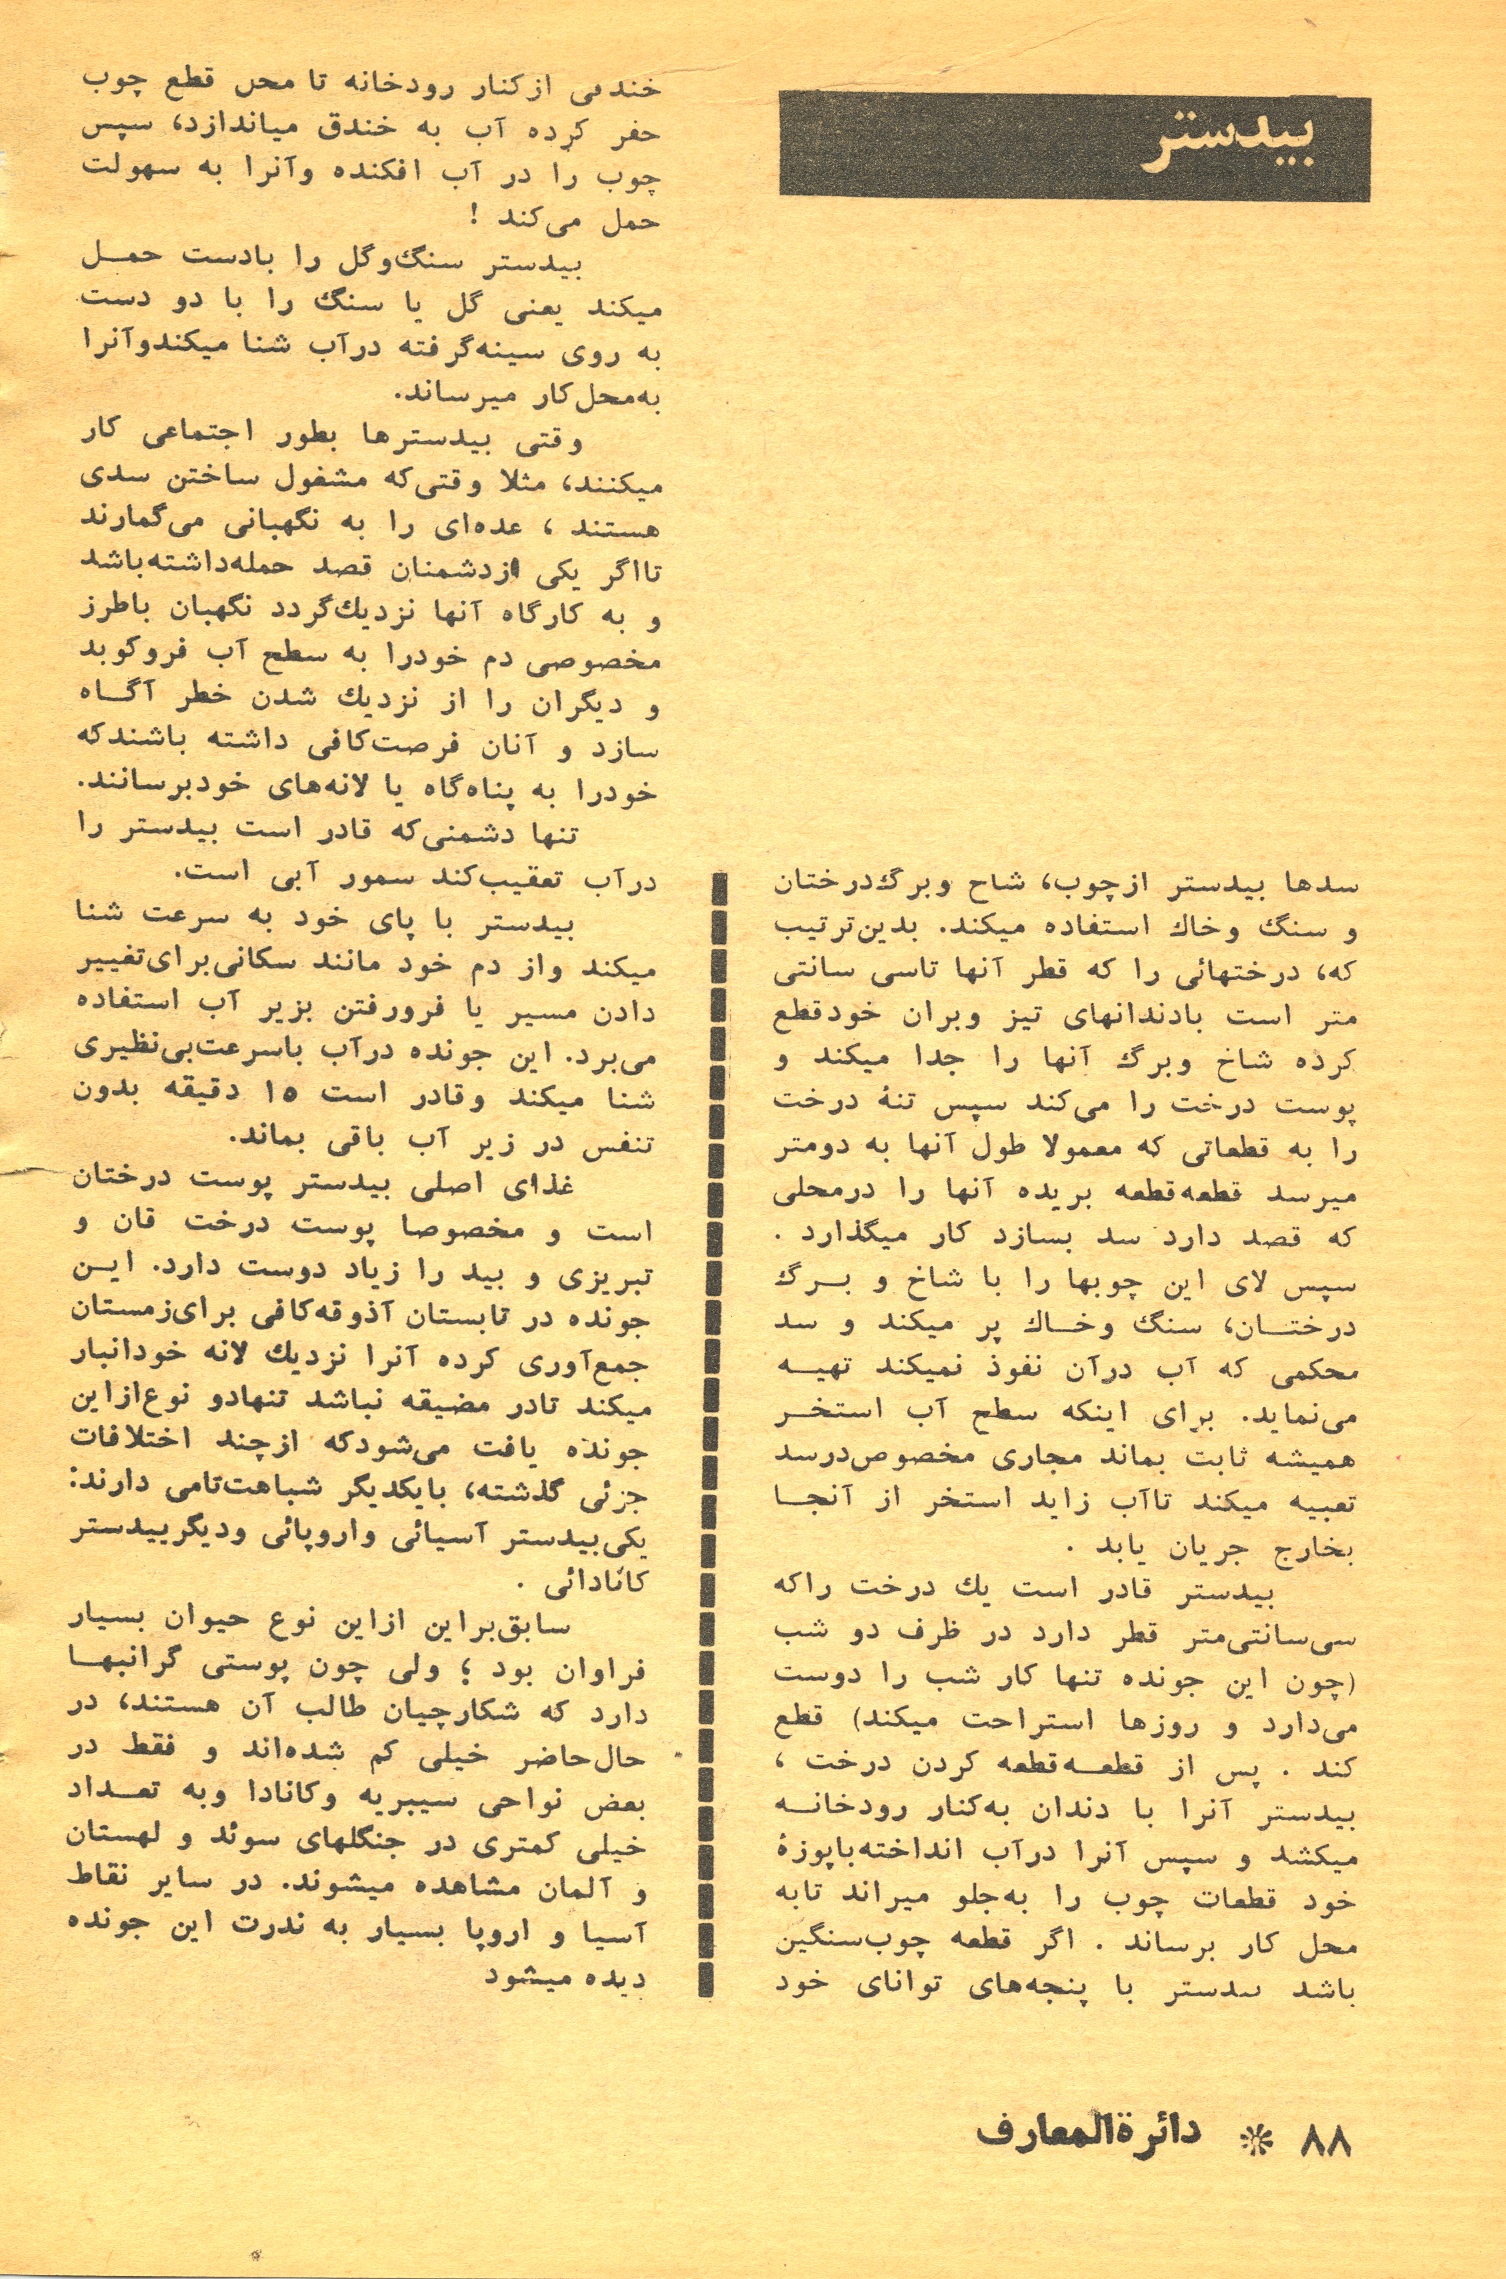 بیدستر
سدها بیدستر ازچوب، شاخ وبرگ‌درختان
و سنگ وخاك استفاده میکند. بدین‌ترتیب
که، درختهائی را که قطر آنها تاسی سانتی
متر است بادندانهای تیز وبران خودقطع
کرده شاخ وبرگ آنها را جدا میکند و
پوست درخت را می‌کند سپس تنهٔ درخت
را به قطعاتی که معمولا طول آنها به دومتر
میرسد قطعه‌قطعه بریده آنها را درمحلی
که قصد دارد سد بسازد کار میگذارد .
سپس لای این چوبها را با شاخ و بــرگ
درختــان، سنگ وخــاك پر میکند و سد
محکمی که آب درآن نفوذ نمیکند تهیــه
می‌نماید. برای اینکه سطح آب استخــر
همیشه ثابت بماند مجاری مخصوص‌درسد
تعبیه میکند تاآب زاید استخر از آنجــا
بخارج جریان یابد .
بیدستر قادر است یك درخت راکه
سی‌سانتی‌متر قطر دارد در ظرف دو شب
(چون این جونده تنها کار شب را دوست
می‌دارد و روزها استراحت میکند) قطع
کند . پس از قطعــه‌قطعه کردن درخت ،
بیدستر آنرا با دندان به‌کنار رودخانــه
میکشد و سپس آنرا درآب انداخته‌باپوزهٔ
خود قطعات چوب را به‌جلو میراند تابه
محل کار برساند . اگر قطعه چوب‌سنگین
باشد بیدستر با پنجه‌های توانای خود
خندقی ازکنار رودخانه تا محل قطع چوب
حفر کرده آب به خندق میاندازد، سپس
چوب را در آب افکنده وآنرا به سهولت
حمل می‌کند !
بیدستر سنگ‌وگل را بادست حمــل
میکند یعنی گل یا سنگ را با دو دست
به روی سینه‌گرفته درآب شنا میکندوآنرا
به‌محل‌کار میرساند.
وقتی بیدسترها بطور اجتماعی کار
میکنند، مثلا وقتی‌که مشغول ساختن سدی
هستند ، عده‌ای را به نگهبانی می‌گمارند
تااگر یکی ازدشمنان قصد حمله‌داشته‌باشد
و به کارگاه آنها نزدیك‌گردد نگهبان باطرز
مخصوصی دم خودرا به سطح آب فروکوبد
و دیگران را از نزدیك شدن خطر آگــاه
سازد و آنان فرصت‌کافی داشته باشندکه
خودرا به پناه‌گاه یا لانه‌های خودبرسانند.
تنها دشمنی‌که قادر است بیدستر را
درآب تعقیب‌کند سمور آبی است.
بیدستر با پای خود به سرعت شنا
میکند واز دم خود مانند سکانی‌برای‌تغییر
دادن مسیر یا فرورفتن بزیر آب استفاده
می‌برد. این جونده درآب باسرعت‌بی‌نظیری
شنا میکند وقادر است ۱۵ دقیقه بدون
تنفس در زیر آب باقی بماند.
غذای اصلی بیدستر پوست درختان
است و مخصوصا پوست درخت قان و
تبریزی و بید را زیاد دوست دارد. ایــن
جونده در تابستان آذوقه‌کافی برای‌زمستان
جمع‌آوری کرده آنرا نزدیك لانه خودانبار
میکند تادر مضیقه نباشد تنهادو نوع‌ازاین
جونده یافت می‌شودکه ازچند اختلافات
جزئی گذشته، بایکدیگر شباهت‌تامی دارند:
یکی‌بیدستر آسیائی واروپائی ودیگربیدستر
کانادائی .
سابق‌براین ازاین نوع حیوان بسیار
فراوان بود ؛ ولی چون پوستی گرانبهــا
دارد که شکارچیان طالب آن هستند، در
حال‌حاضر خیلی کم شده‌اند و فقط در
بعض نواحی سیبریه وکانادا وبه تعــداد
خیلی کمتری در جنگلهای سوئد و لهستان
و آلمان مشاهده میشوند. در سایر نقاط
آسیا و اروپا بسیار به ندرت این جونده
دیده میشود
۸۸ ❊ دائرةالمعارف